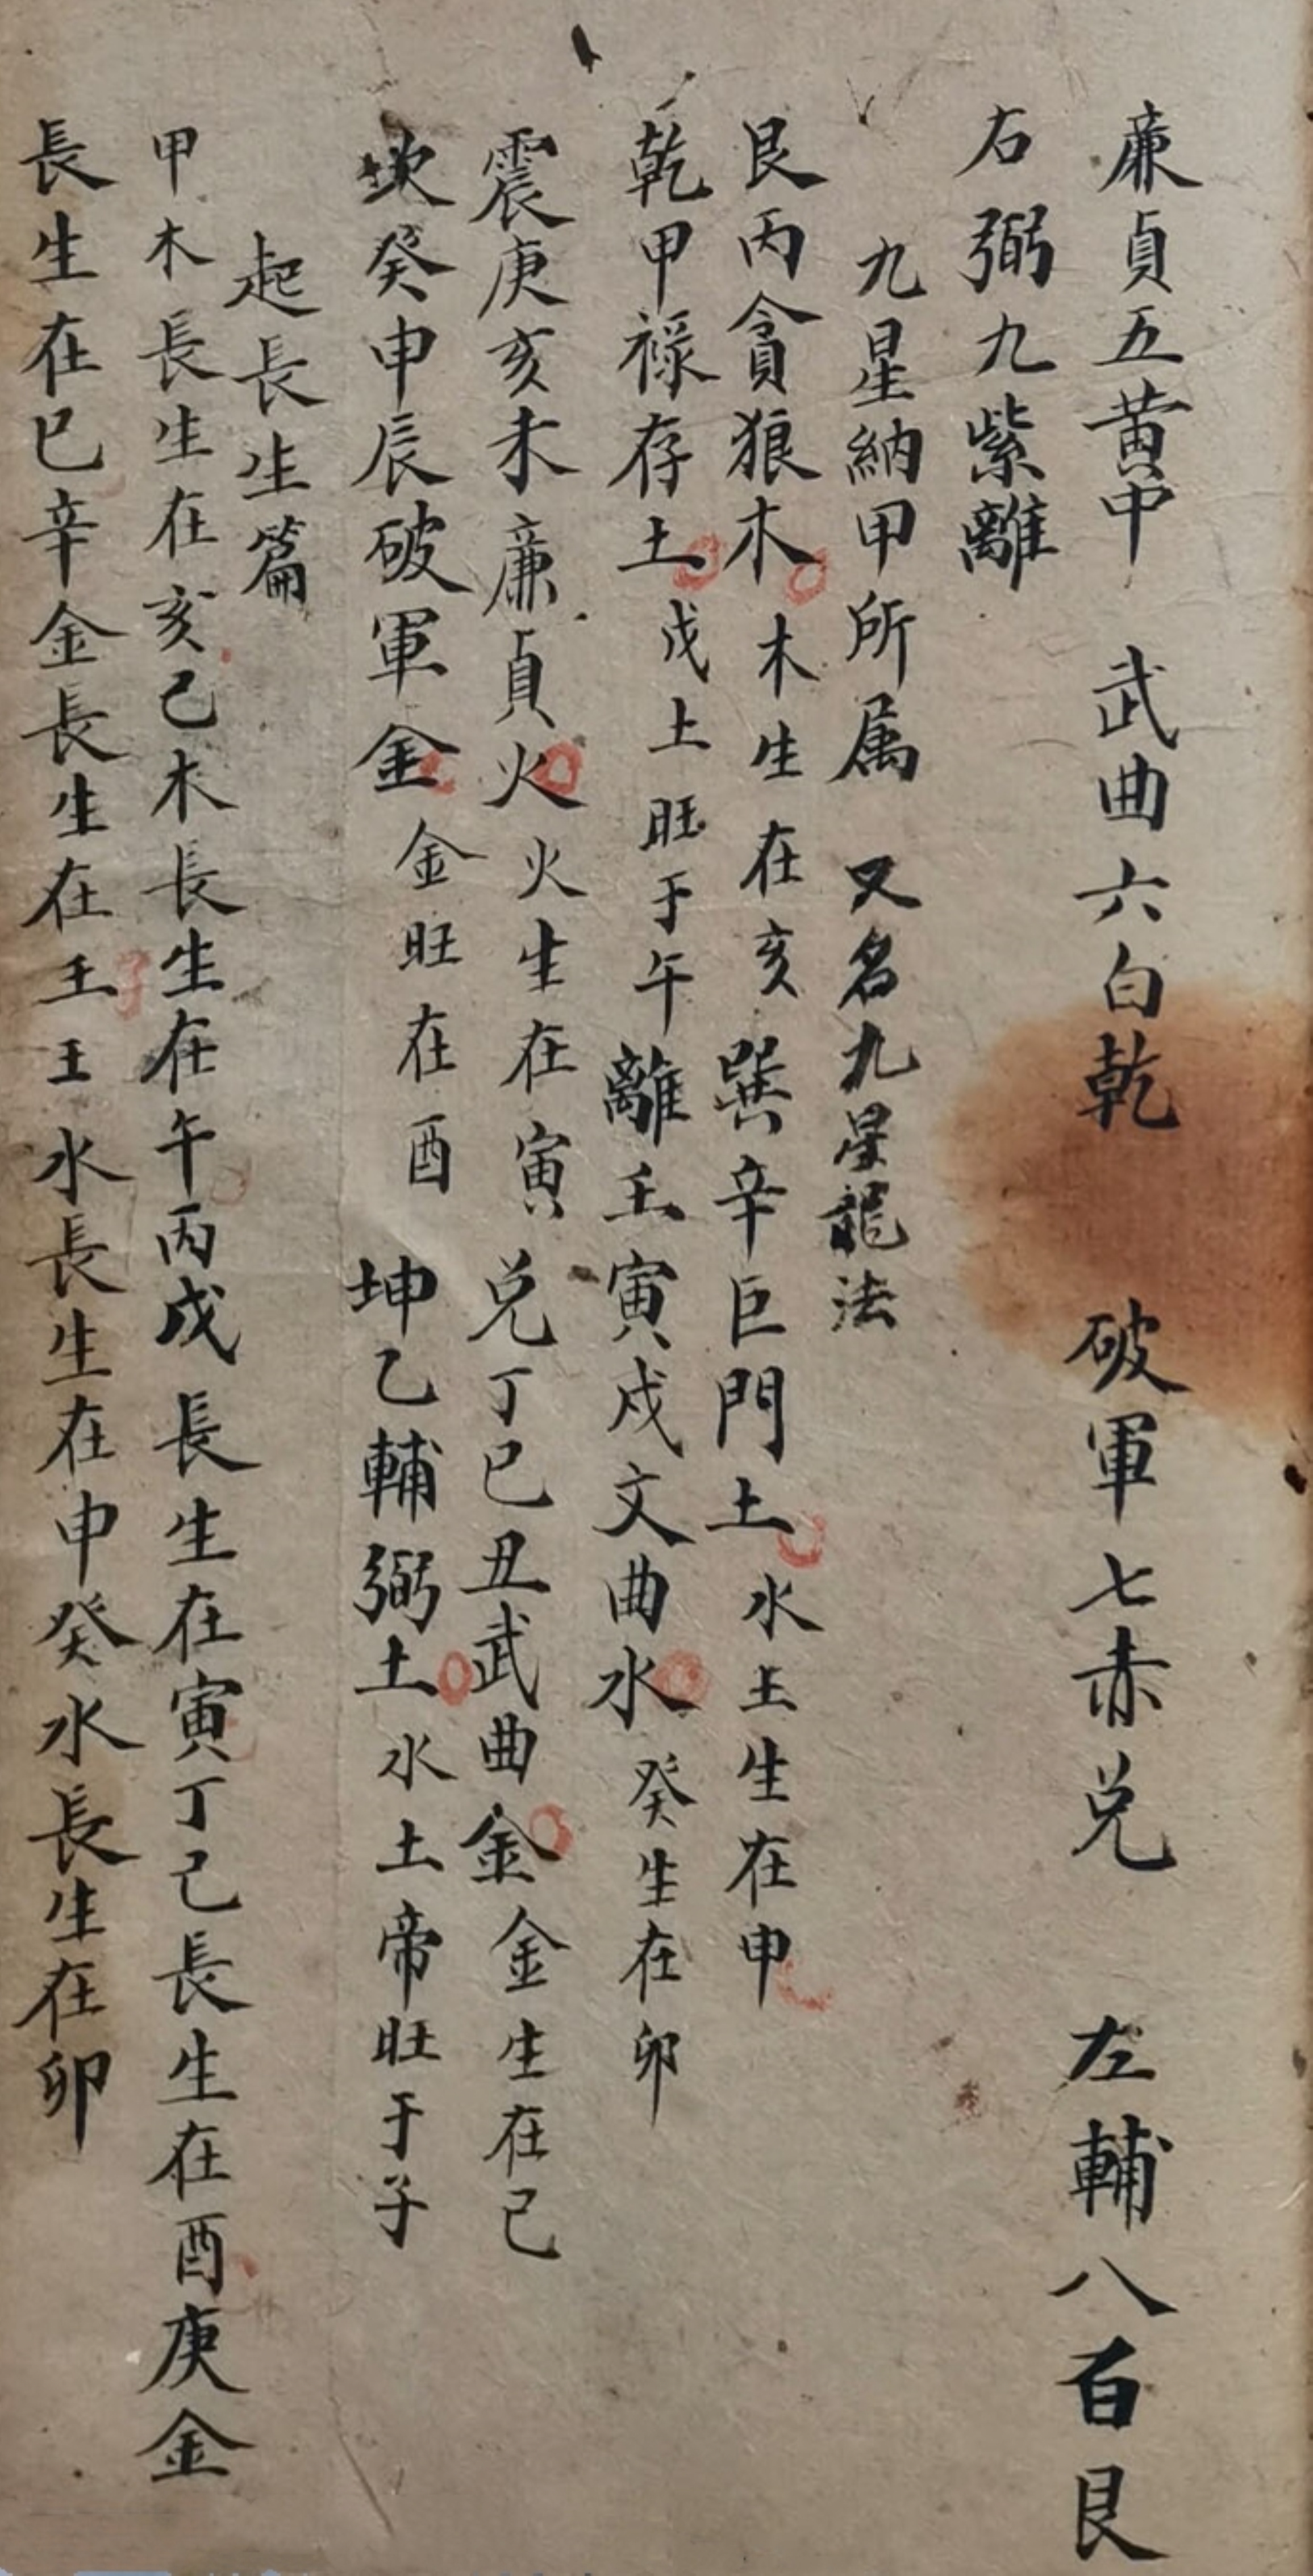 廉貞五黄中　武曲六白乾　破軍七赤兑　左輔八百艮
右弼九紫離
九星納甲所属　又名九星龍法
艮丙貪狼木　木生在亥　巽辛巨門土　水土生在申
乾甲禄存土　戊土旺于午　離壬寅戌文曲水　癸生在卯
震庚亥未廉貞火　火生在寅　兑丁巳丑武曲金　金生在己
坎癸申辰破軍金　金旺在酉　坤乙輔弼土　水土帝旺于子
起長生篇
甲木長生在亥己木長生在午丙戊長生在寅丁己長生在酉庚金
長生在巳辛金長生在王王水長生在申癸水長生在卯